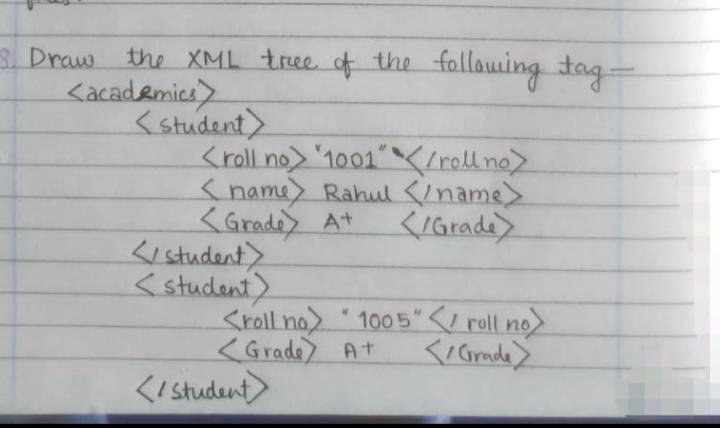 8. Draw the XML tree of the following tag —
<academics>
<student>
<roll no> "1001" </roll no>
<name> Rahul </name>
<Grade> A+ </Grade>
</student>
<student>
<roll no> "1005" </roll no>
<Grade> A+ </Grade>
</student>